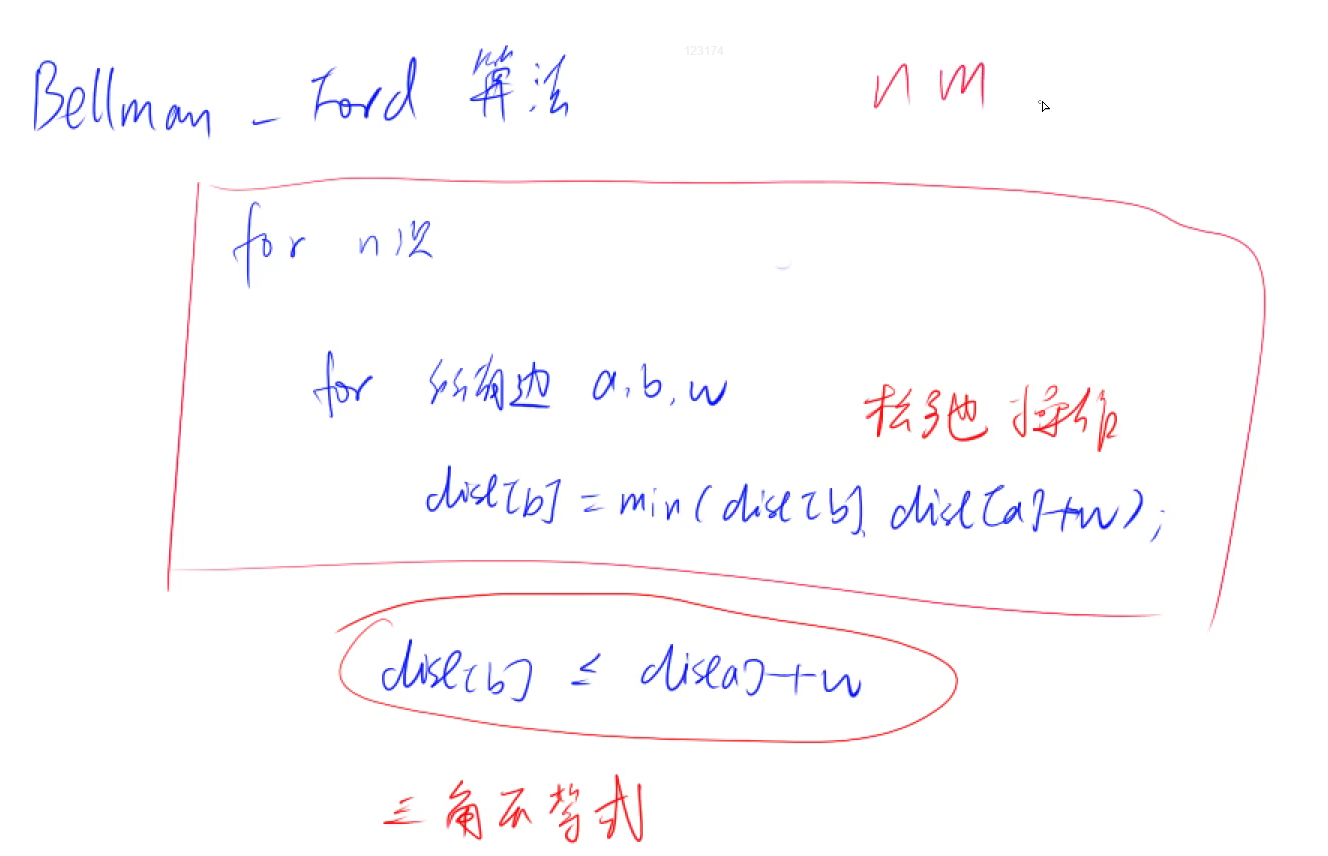 123174
Bellman - Ford 算法
n m
for n次
for 所有边 a,b,w
松弛操作
dist[b] = min(dist[b], dist[a]+w);
dist[b] ≤ dist[a]+w
三角不等式